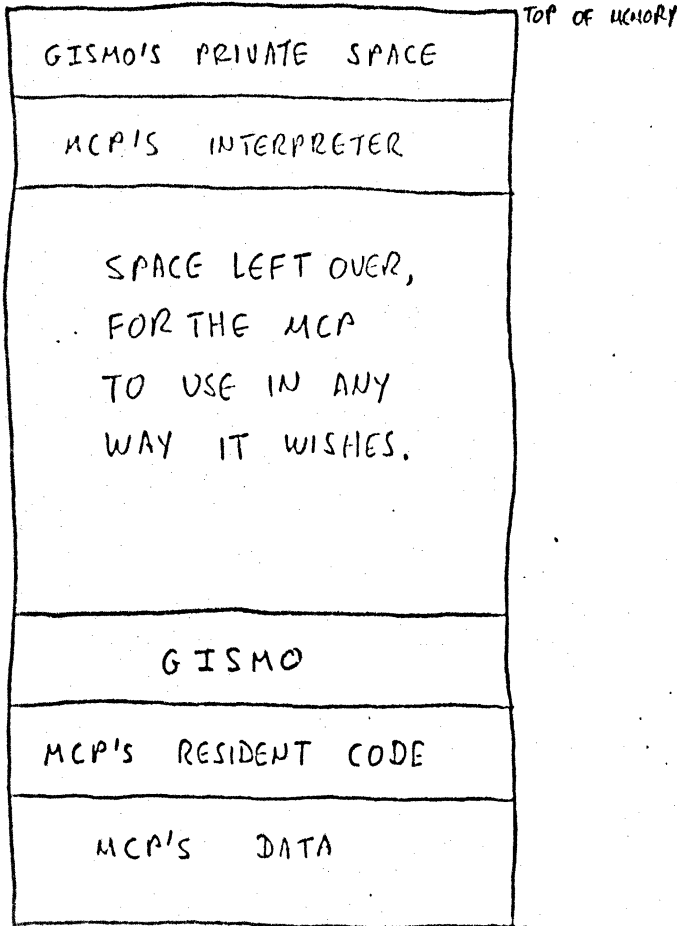 TOP OF MEMORY
GISMO'S PRIVATE SPACE
MCP'S INTERPRETER
SPACE LEFT OVER,
FOR THE MCP
TO USE IN ANY
WAY IT WISHES.
GISMO
MCP'S RESIDENT CODE
MCP'S DATA